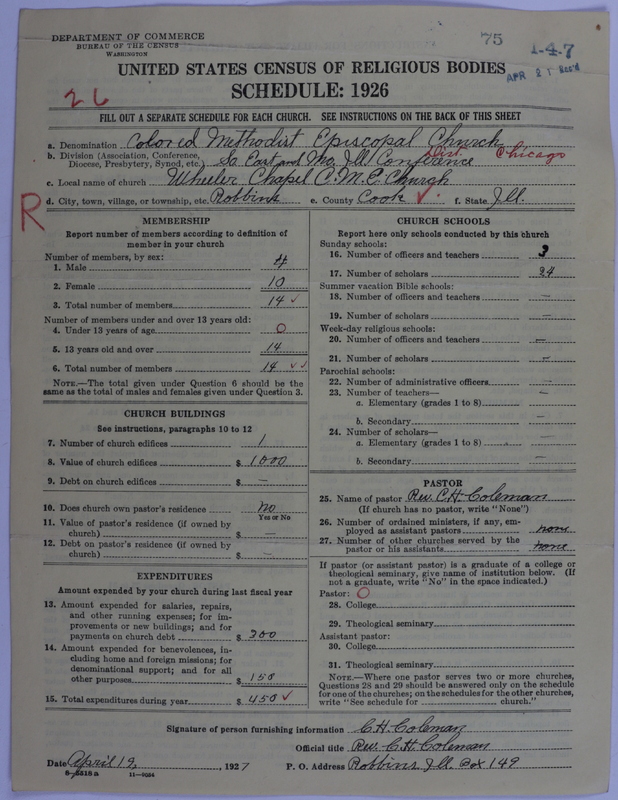 DEPARTMENT OF COMMERCE
BUREAU OF THE CENSUS
WASHINGTON
75
1-4-7
APR 21 Rec'd
UNITED STATES CENSUS OF RELIGIOUS BODIES
SCHEDULE: 1926
26
FILL OUT A SEPARATE SCHEDULE FOR EACH CHURCH. SEE INSTRUCTIONS ON THE BACK OF THIS SHEET
a. Denomination Colored Methodist Episcopal Church
b. Division (Association, Conference, Diocese, Presbytery, Synod, etc.) So. East and Mo. Ill. Conference Dist. Chicago
c. Local name of church Wheeler Chapel C.M.E. Church
d. City, town, village, or township, etc. Robbins e. County Cook ✓ f. State Ill.
R
MEMBERSHIP
Report number of members according to definition of
member in your church
Number of members, by sex:
1. Male 4
2. Female 10
3. Total number of members 14 ✓
Number of members under and over 13 years old:
4. Under 13 years of age 0
5. 13 years old and over 14
6. Total number of members 14 ✓✓
NOTE.—The total given under Question 6 should be the
same as the total of males and females given under Question 3.
CHURCH BUILDINGS
See instructions, paragraphs 10 to 12
7. Number of church edifices 1
8. Value of church edifices $ 1000
9. Debt on church edifices $ —
10. Does church own pastor's residence no
Yes or No
11. Value of pastor's residence (if owned by
church) $ —
12. Debt on pastor's residence (if owned by
church) $ —
EXPENDITURES
Amount expended by your church during last fiscal year
13. Amount expended for salaries, repairs,
and other running expenses; for im-
provements or new buildings; and for
payments on church debt $ 300
14. Amount expended for benevolences, in-
cluding home and foreign missions; for
denominational support; and for all
other purposes $ 150
15. Total expenditures during year $ 450 ✓
CHURCH SCHOOLS
Report here only schools conducted by this church
Sunday schools:
16. Number of officers and teachers 3
17. Number of scholars 24
Summer vacation Bible schools:
18. Number of officers and teachers —
19. Number of scholars —
Week-day religious schools:
20. Number of officers and teachers —
21. Number of scholars —
Parochial schools:
22. Number of administrative officers —
23. Number of teachers—
a. Elementary (grades 1 to 8) —
b. Secondary —
24. Number of scholars—
a. Elementary (grades 1 to 8) —
b. Secondary —
PASTOR
25. Name of pastor Rev. C.H. Coleman
(If church has no pastor, write "None")
26. Number of ordained ministers, if any, em-
ployed as assistant pastors none
27. Number of other churches served by the
pastor or his assistants none
If pastor (or assistant pastor) is a graduate of a college or
theological seminary, give name of institution below. (If
not a graduate, write "No" in the space indicated.)
Pastor: O
28. College
29. Theological seminary
Assistant pastor:
30. College
31. Theological seminary
NOTE.—Where one pastor serves two or more churches,
Questions 28 and 29 should be answered only on the schedule
for one of the churches; on the schedules for the other churches,
write "See schedule for church."
Signature of person furnishing information C.H. Coleman
Official title Rev. C.H. Coleman
Date April 19, 1927 P. O. Address Robbins Ill. Box 149
11—9034